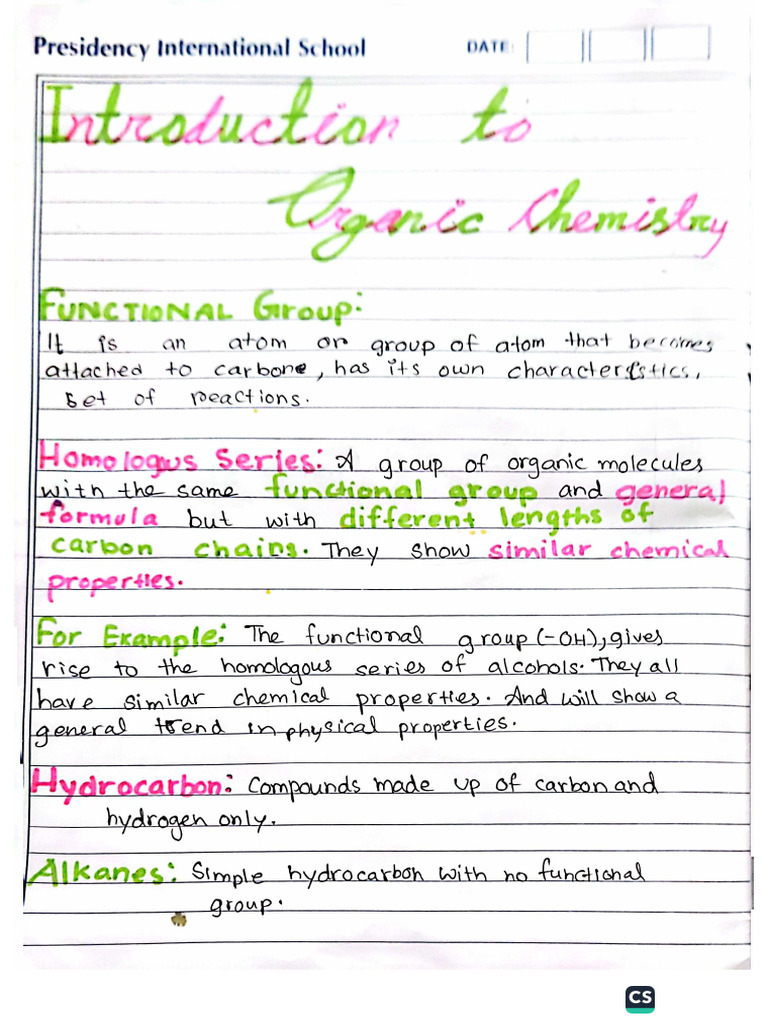 Presidency International School DATE:
Introduction to
Organic Chemistry
FUNCTIONAL Group:
It is an atom or group of atom that becomes
attached to carbone, has its own characteristics,
set of reactions.
Homologus Series: A group of organic molecules
with the same functional group and general
formula but with different lengths of
carbon chains. They show similar chemical
properties.
For Example: The functional group (-OH), gives
rise to the homologous series of alcohols. They all
have similar chemical properties. And will show a
general trend in physical properties.
Hydrocarbon: Compounds made up of carbon and
hydrogen only.
Alkanes: Simple hydrocarbon with no functional
group.
CS